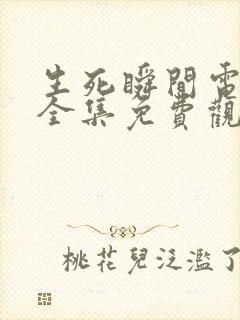 生死瞬間電
全集免費觀
桃花兒泛濫了